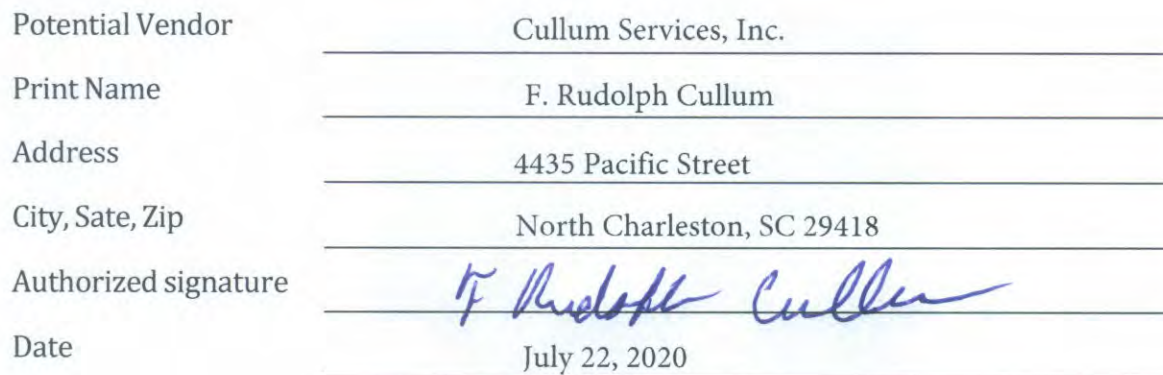 Potential Vendor Cullum Services, Inc.
Print Name F. Rudolph Cullum
Address 4435 Pacific Street
City, Sate, Zip North Charleston, SC 29418
Authorized signature F Rudolph Cullum
Date July 22, 2020